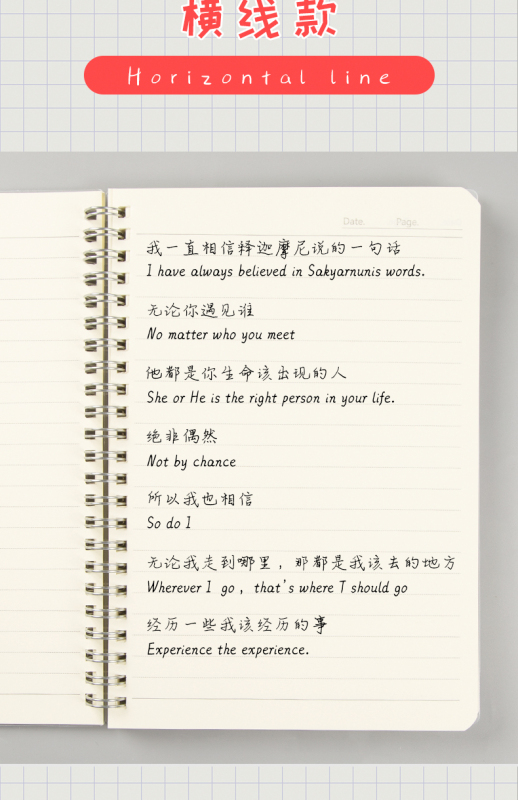 横线款
Horizontal line
Date. Page.
我一直相信释迦摩尼说的一句话
I have always believed in Sakyarnunis words.
无论你遇见谁
No matter who you meet
他都是你生命该出现的人
She or He is the right person in your life.
绝非偶然
Not by chance
所以我也相信
So do I
无论我走到哪里，那都是我该去的地方
Wherever I go , that's where T should go
经历一些我该经历的事
Experience the experience.